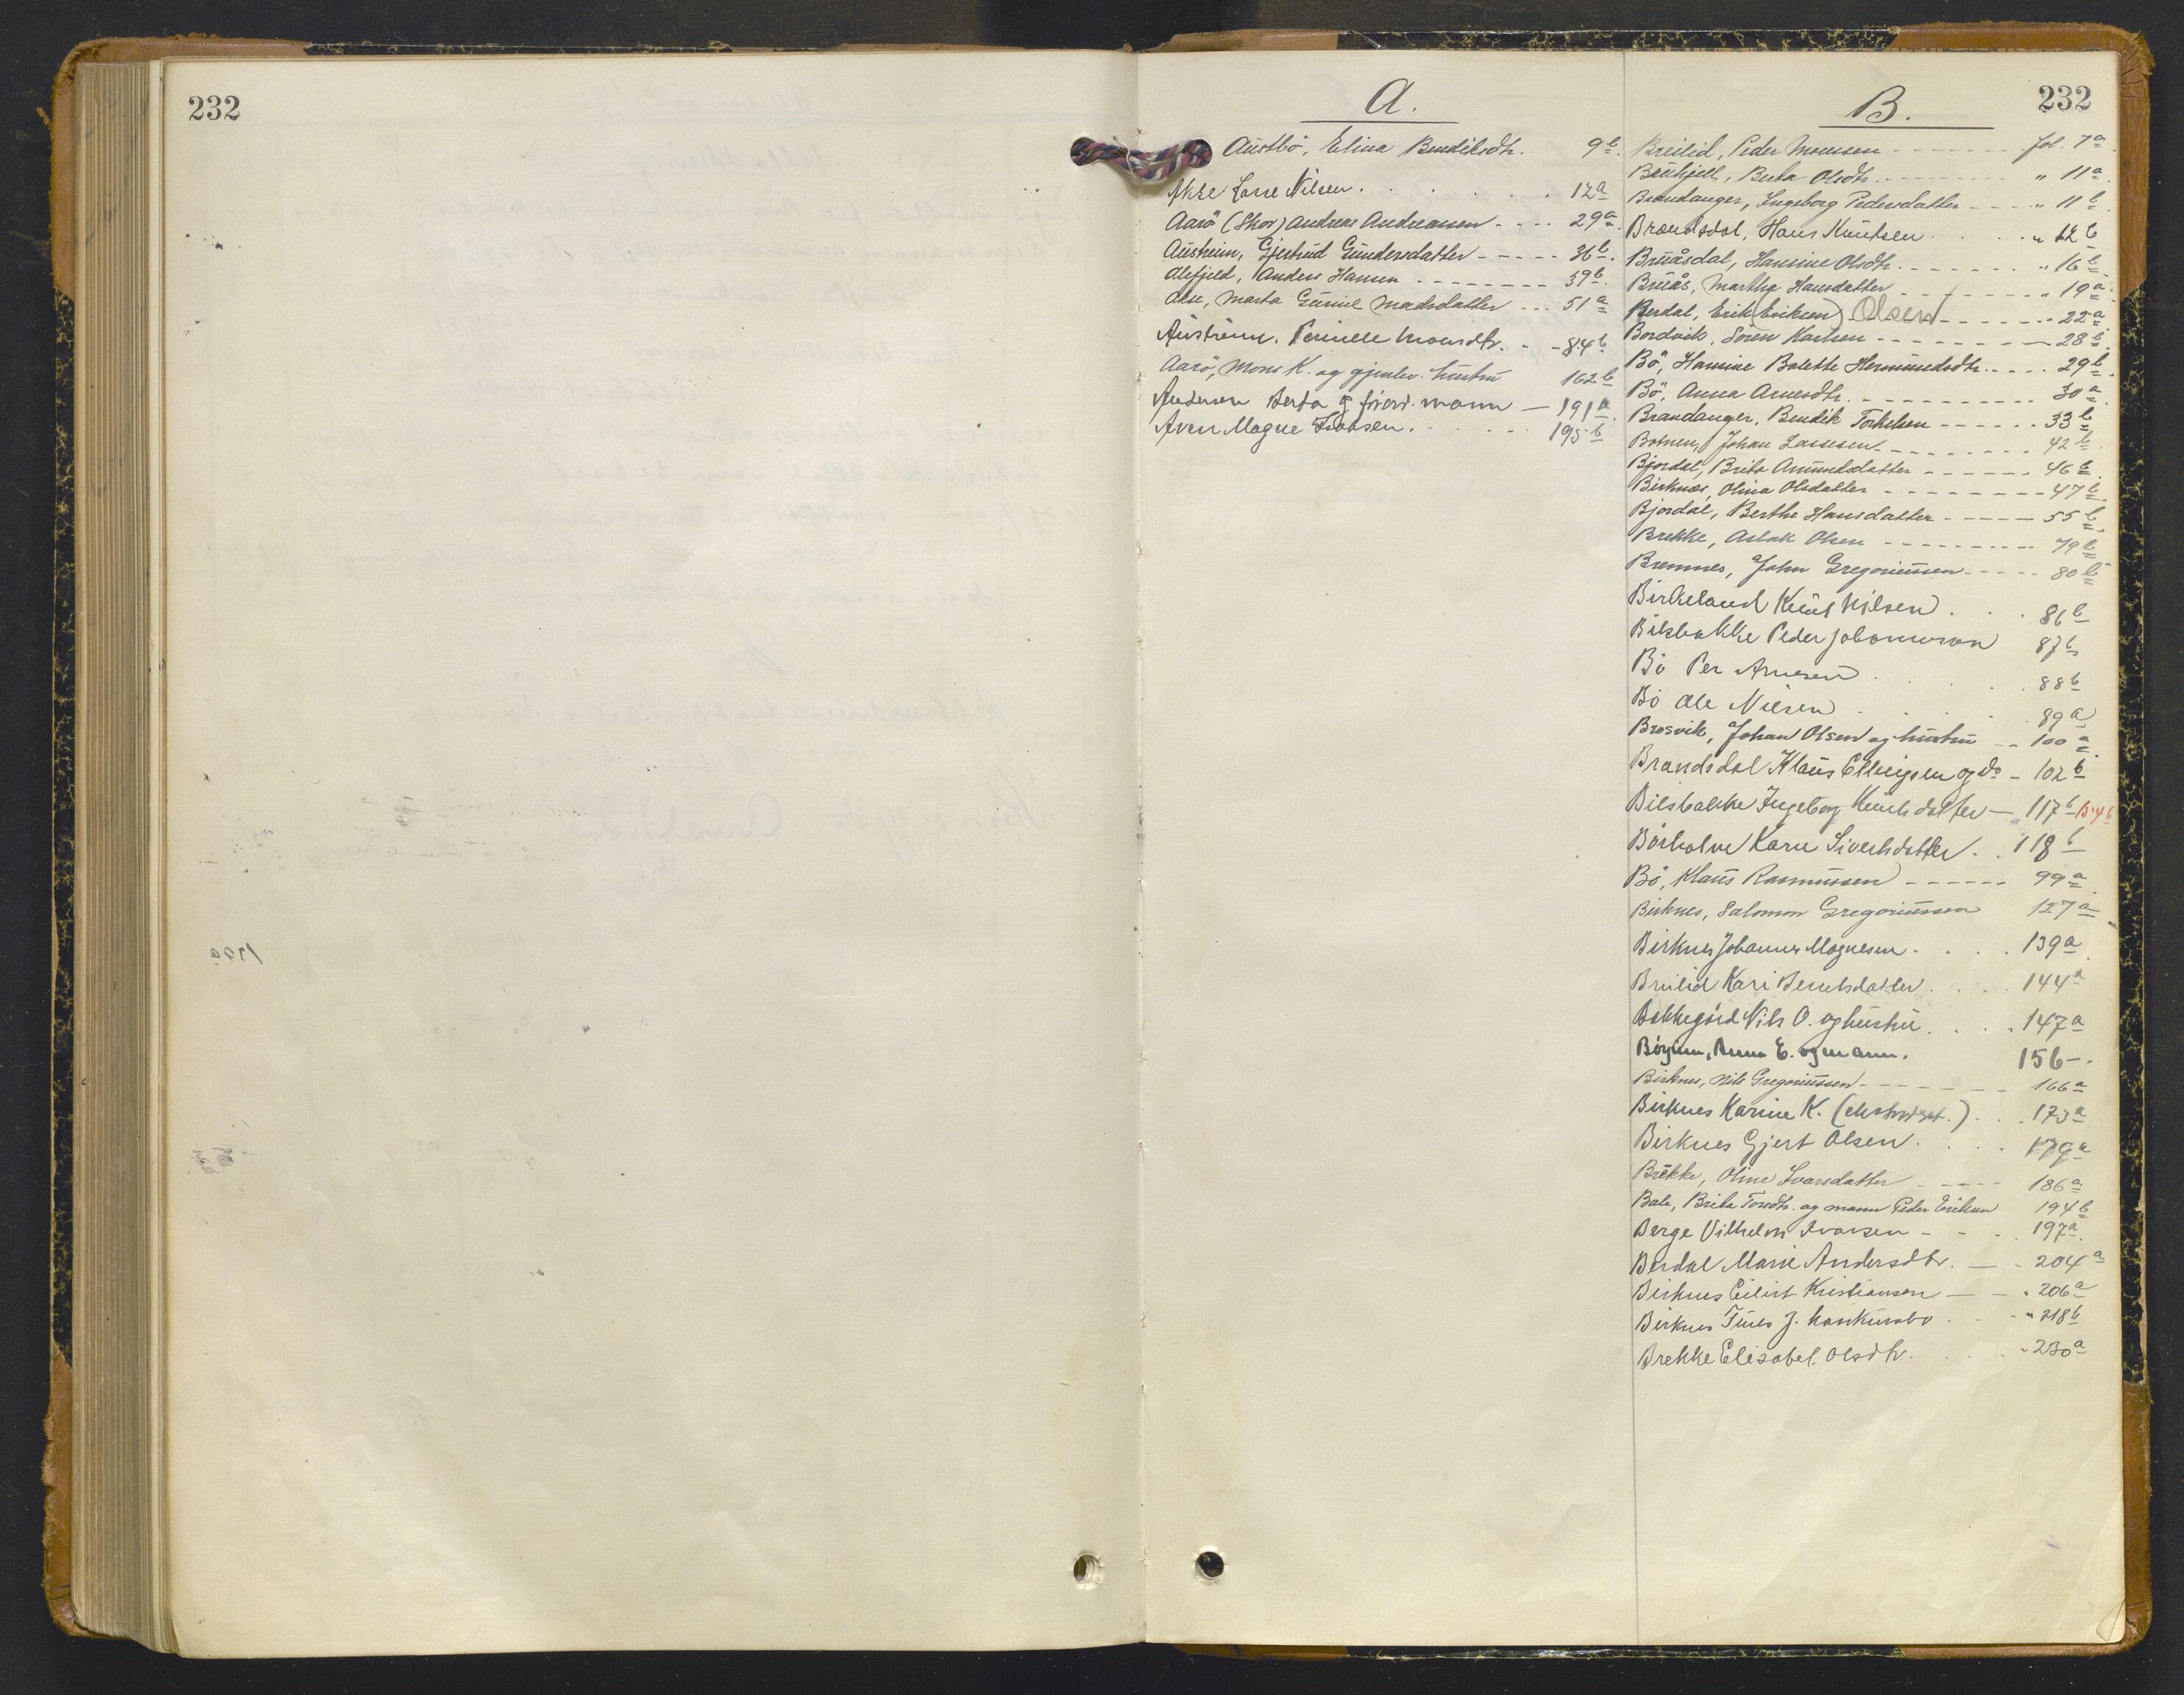 232
A.
Austbö, Elina Bendiksdtr. 9b
Akse Lasse Nilsen. 12a
Aarö (Skor) Andreas Andreassen 29a
Austreim, Gjertrud Gundersdatter 36b.
Alefjeld, Anders Hansen 39b.
Ase, Marta Gurine Madsdatter 51a
Austreim. Pernille Monsdtr. 84b
Aarö, Mons K. og gjenlev. hustru 162b
Andersen Berta og forsv. mann 191a
Aven Magne 195b
B. 232
Breilid, Peder Monsen fol. 7a
Berta Olsdtr. " 11a
Brandanger, Ingeborg Pedersdatter " 11b
Brandsdal, Hans Knutsen " 12b
Bruåsdal, Hansine Olsdtr. " 16b
Bruås, Martha Hansdatter " 19a
Berdal, Erik (Eriksen) Olsen " 22a
Bordvik, Sören Karlsen 28b
Bö, Hansine Bolette Hermundsdtr. 29b
Bö, Anna Arnesdtr. 30a
Brandanger, Bendik Torkelsen 33b
Botnen, Johan Lassesen 42b
Bjordal, Brita Amundsdatter 46b
Birknes, Olina Olsdatter 47b
Bjordal, Berthe Hansdatter 55b
Brekke, Aslak Olsen 79b
Bremnes, John Gregoriussen 80b
Birkeland Knut Nilsen 86b
Bilsbakke Peder Johannesen 87b
Bö Per Arnesen 88b
Bö Ole Nilsen 89a
Brosvik, Johan Olsen og hustru 100a
Brandsdal Klaus Ellingsen og do 102b
Bilsbakke Ingeborg Knutsdatter 117b 154b
Börholm Karie Sivertsdatter 118b
Bö, Klaus Rasmussen 99a
Birknes, Salomon Gregoriussen 127a
Birknes Johannes Magnesen 139a
Breilid Kari Berentsdatter 144a
Bakkegård Nils O. og hustru 147a
Böyum, Anna E. og mann. 156
Birknes, Nils Gregoriussen 166a
Birknes Karine K. 173a
Birknes Gjert Olsen 179a
Brekke, Oline Ivarsdatter 186a
Bale, Brita Tosdtr. og mann Peder Eriksen 194b
Berge Vilhelm Ivarsen 197a
Berdal Marie Andersdtr. 204a
Birknes Eilert Kristiansen " 206a
Birknes J. konkursbo " 218b
Brekke Elisabet Olsdtr. " 230a